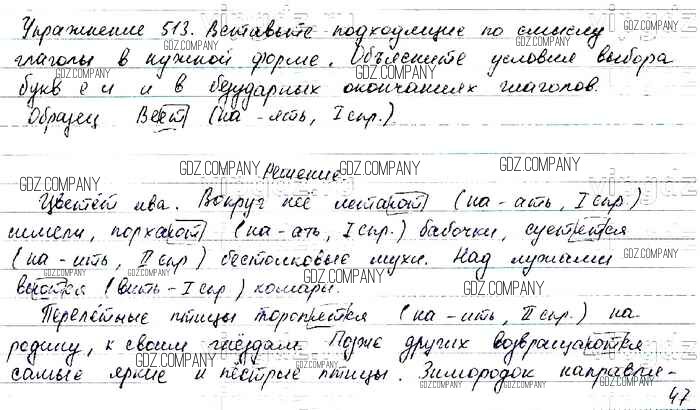 Упражнение 513. Вставьте подходящие по смыслу
глаголы в нужной форме. Объясните условия выбора
букв е и и в безударных окончаниях глаголов.
Образец Веет (на -ять, I спр.)
Решение
Цветёт ива. Вокруг неё летают (на - ать, I спр.)
шмели, порхают (на - ать, I спр.) бабочки, суетятся
(на - ить, II спр) бестолковые мухи. Над лужами
вьются (вить - I спр) комары.
Перелётные птицы торопятся (на - ить, II спр.) на
родину, к своим гнёздам. Позже других возвращаются
самые яркие и пёстрые птицы. Зимородок направля-
47
GDZ.COMPANY